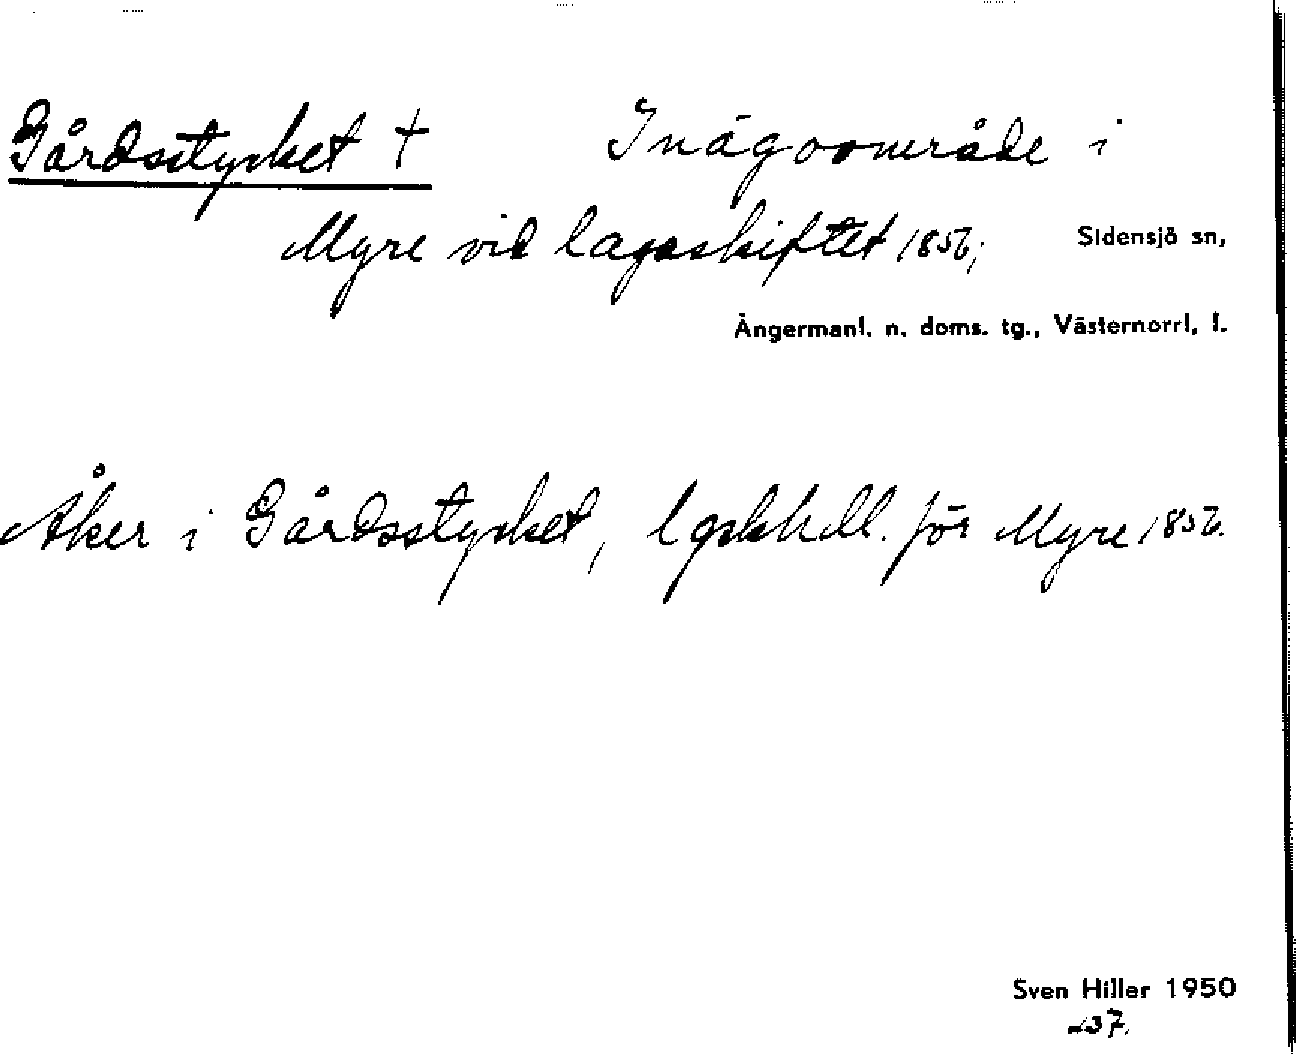 Gårdsstycket † Inägoområde i
Myre vid lagaskiftet 1856; Sidensjö sn,
Ångermanl. n. doms. tg., Västernorrl. l.
Åker i Gårdsstycket, lgskhdl. för Myre 1856.
Sven Hiller 1950